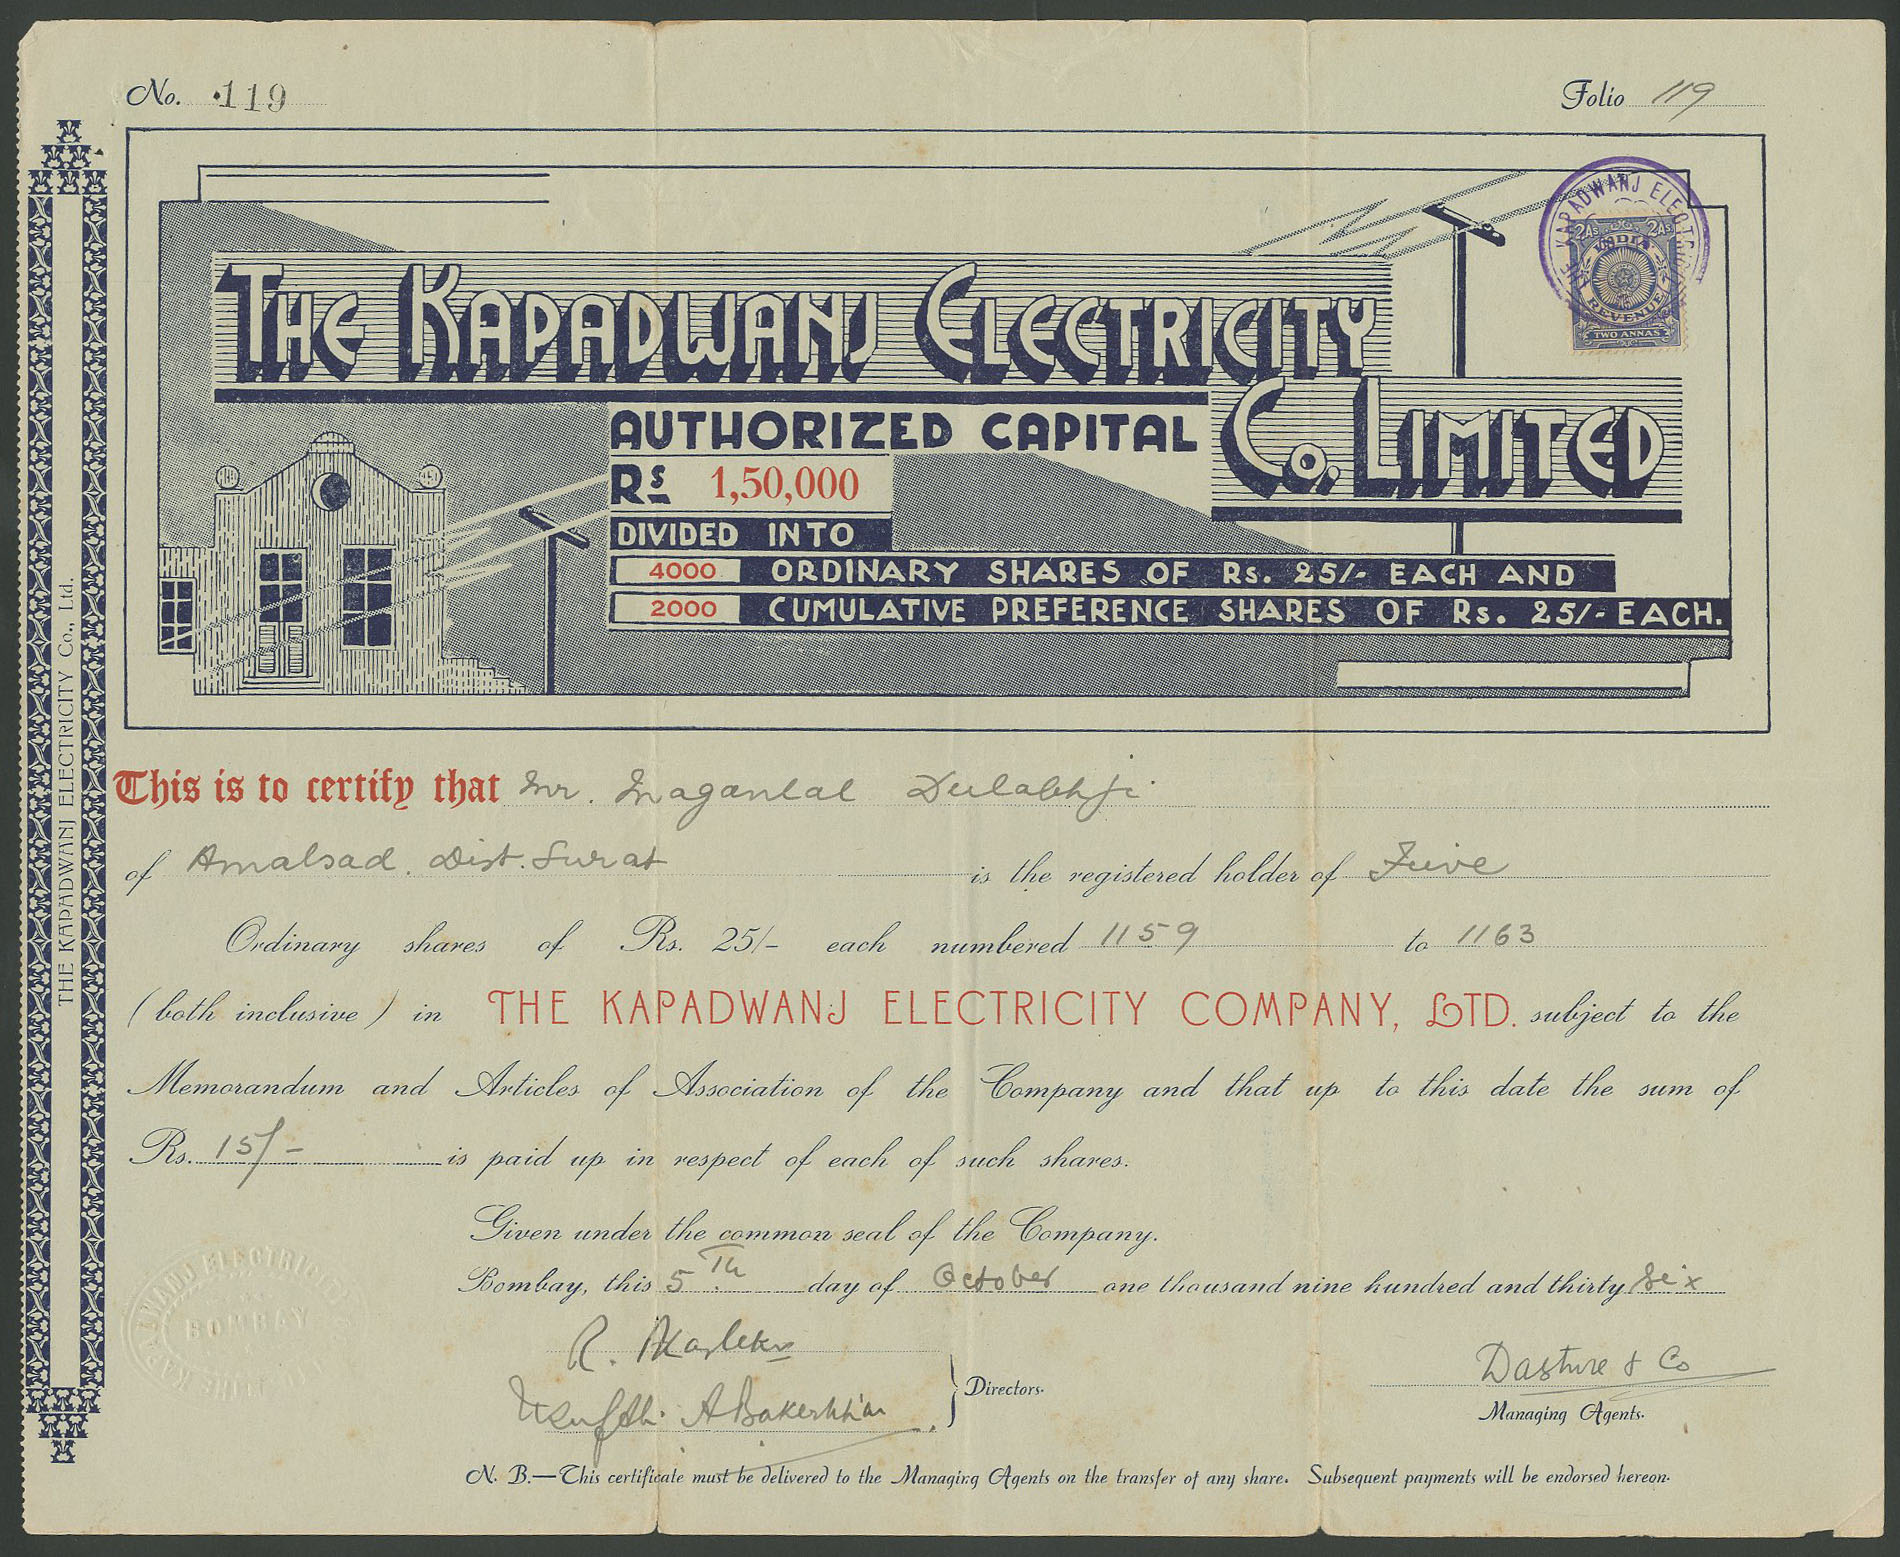 No. 119
Folio 119
THE KAPADWANJ ELECTRICITY
CO. LIMITED
AUTHORIZED CAPITAL
RS 1,50,000
DIVIDED INTO
4000 ORDINARY SHARES OF Rs. 25/- EACH AND
2000 CUMULATIVE PREFERENCE SHARES OF Rs. 25/- EACH.
KAPADWANJ ELECTRI
2As 2As
INDIA
REVENUE
TWO ANNAS
THE KAPADWANJ ELECTRICITY Co., Ltd.
This is to certify that Mr. Maganlal Dulabhji
of Amalsad. Dist. Surat is the registered holder of Five
Ordinary shares of Rs. 25/- each numbered 1159 to 1163
(both inclusive) in THE KAPADWANJ ELECTRICITY COMPANY, LTD. subject to the
Memorandum and Articles of Association of the Company and that up to this date the sum of
Rs. 15/- is paid up in respect of each of such shares.
Given under the common seal of the Company.
Bombay, this 5th day of October one thousand nine hundred and thirty six
R.
Directors.
Dasture & Co
Managing Agents.
BOMBAY
N. B.—This certificate must be delivered to the Managing Agents on the transfer of any share. Subsequent payments will be endorsed hereon.